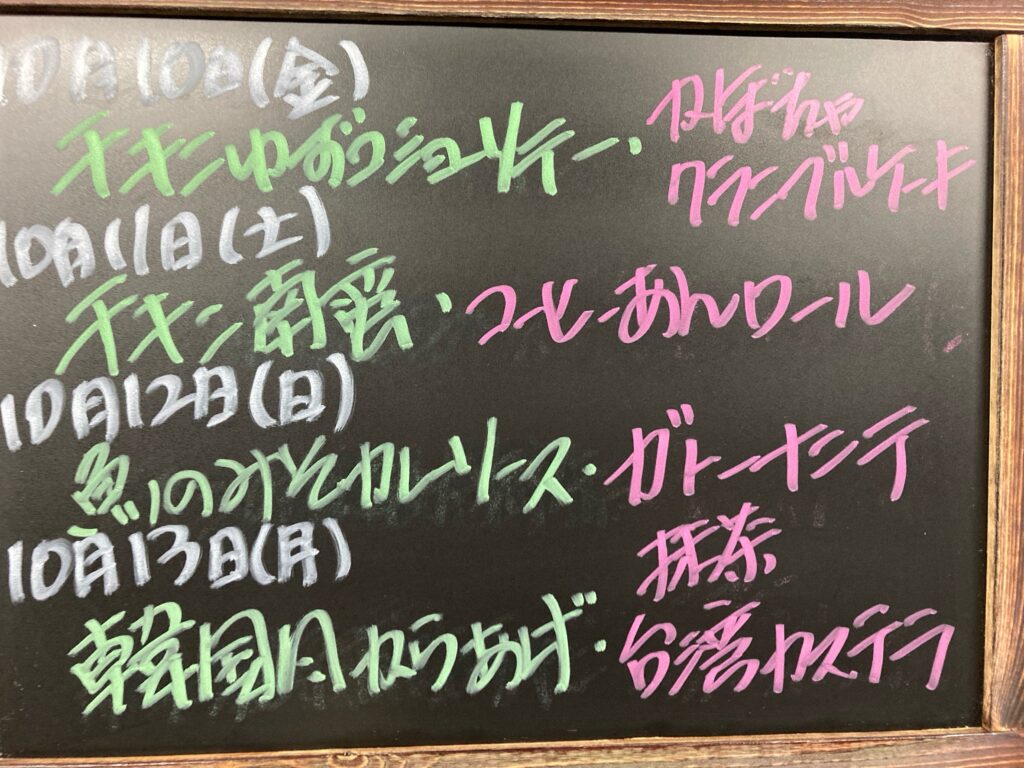 10月10日(金)
チキン
・かぼちゃ
クランブルケーキ
10月11日(土)
チキン南蛮・コーヒーあんロール
10月12日(日)
魚のみそカレーソース・ガトーナンテ
10月13日(月)
抹茶
韓国風からあげ・台湾カステラ